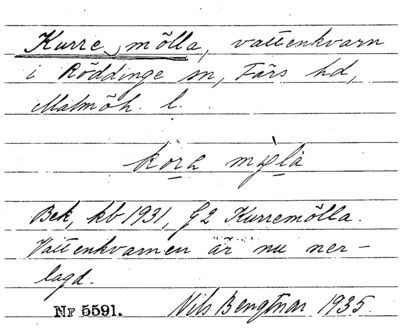 Kurremölla, vattenkvarn
i Röddinge sn, Färs hd,
Malmöh. l.
Bek, kb 1931, G2 Kurremölla.
Vattenkvarnen är nu ner-
lagd.
NF 5591. Nils Bengtsar 1935.